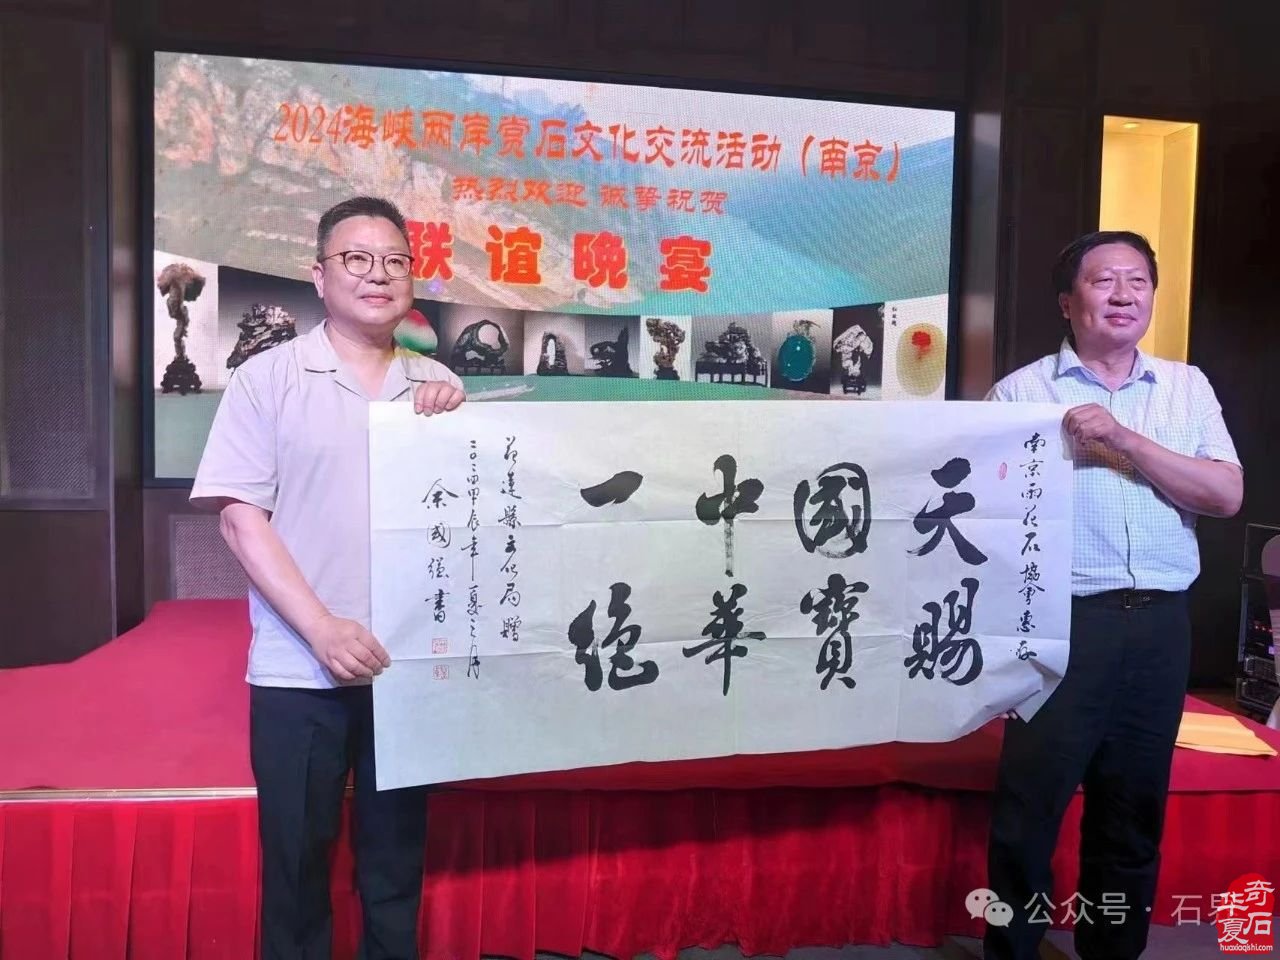 2024海峡两岸赏石文化交流活动（南京）
热烈欢迎 诚挚祝贺
联谊晚宴
南京雨花石協會惠存
天賜
國寶
中華
一絕
花蓮縣文化局贈
二〇二四甲辰年夏之月
余國強書
公众号·石界
华夏奇石
huaxiaqishi.com